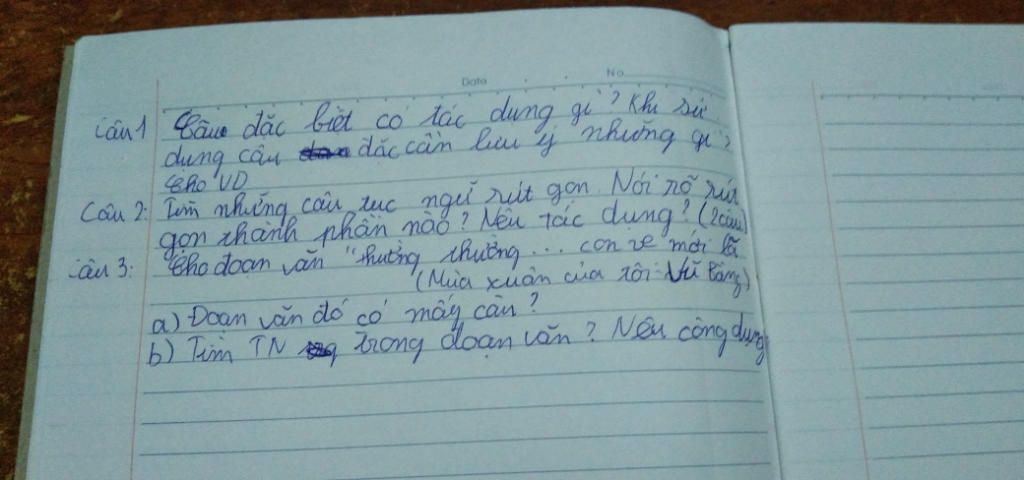 Date No
Câu 1 Câu đặc biệt có tác dụng gì? Khi sử
dụng câu đặc cần lưu ý những gì?
Cho VD
Câu 2: Tìm những câu tục ngữ rút gọn. Nói rõ rút
gọn thành phần nào? Nêu tác dụng? (2 câu)
Câu 3: Cho đoạn văn "thường thường... con ve mới lã
(Mùa xuân của tôi - Vũ Bằng)
a) Đoạn văn đó có mấy câu?
b) Tìm TN trong đoạn văn? Nêu công dụng